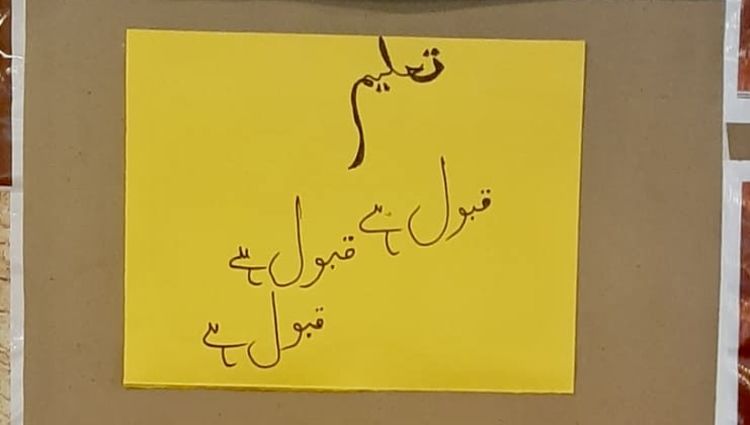 تعلیم
قبول ہے
قبول ہے
قبول ہے